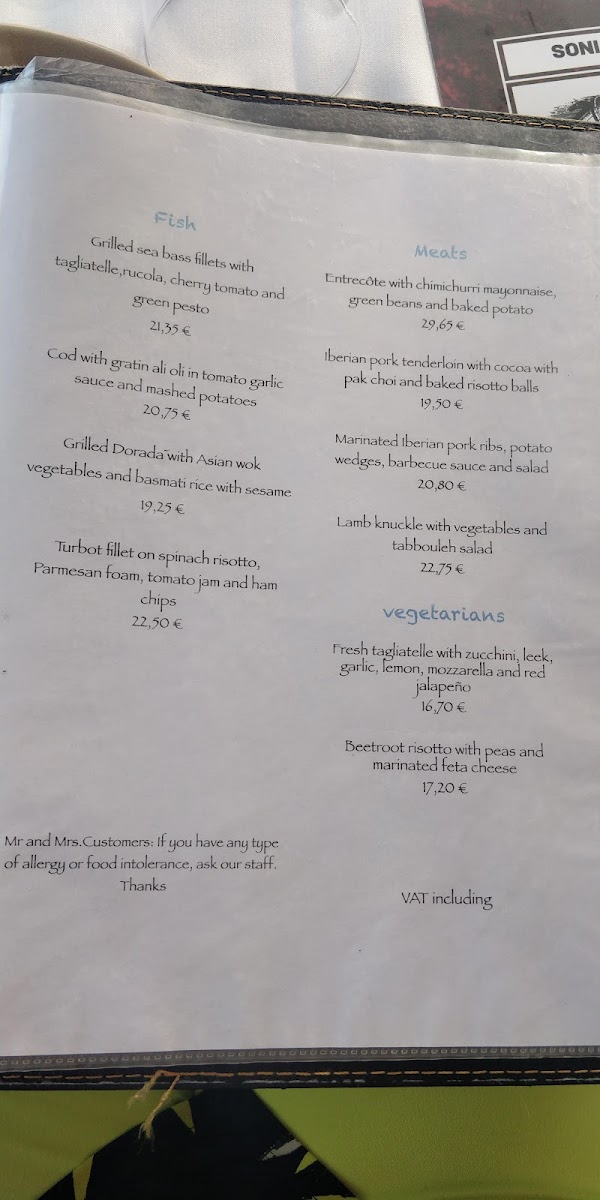 SONI
Fish
Grilled sea bass fillets with
tagliatelle,rucola, cherry tomato and
green pesto
21,35 €
Cod with gratin ali oli in tomato garlic
sauce and mashed potatoes
20,75 €
Grilled Dorada with Asian wok
vegetables and basmati rice with sesame
19,25 €
Turbot fillet on spinach risotto,
Parmesan foam, tomato jam and ham
chips
22,50 €
Mr and Mrs.Customers: If you have any type
of allergy or food intolerance, ask our staff.
Thanks
Meats
Entrecôte with chimichurri mayonnaise,
green beans and baked potato
29,65 €
Iberian pork tenderloin with cocoa with
pak choi and baked risotto balls
19,50 €
Marinated Iberian pork ribs, potato
wedges, barbecue sauce and salad
20,80 €
Lamb knuckle with vegetables and
tabbouleh salad
22,75 €
vegetarians
Fresh tagliatelle with zucchini, leek,
garlic, lemon, mozzarella and red
jalapeño
16,70 €
Beetroot risotto with peas and
marinated feta cheese
17,20 €
VAT including